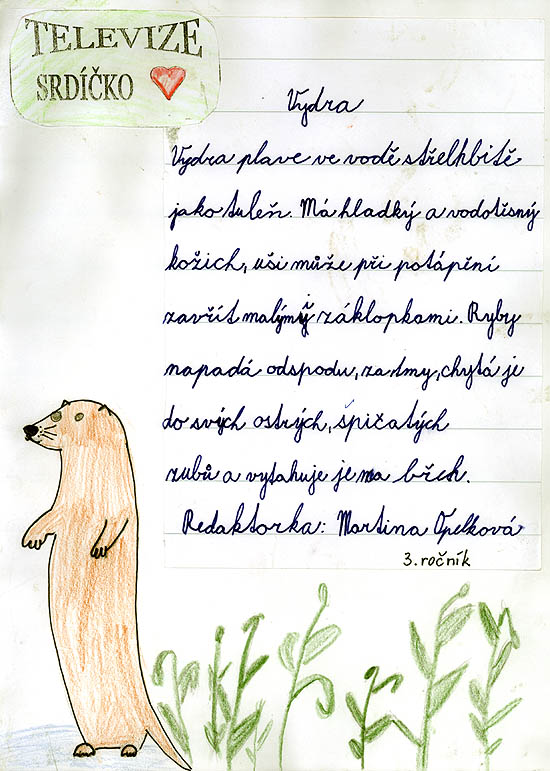 TELEVIZE
SRDÍČKO
Vydra
Vydra plave ve vodě střelhbitě
jako tuleň. Má hladký a vodotěsný
kožich, uši může při potápění
zavřít malými záklopkami. Ryby
napadá odspodu, za tmy, chytá je
do svých ostrých, špičatých
zubů a vytahuje je na břeh.
Redaktorka: Martina Opelková
3. ročník